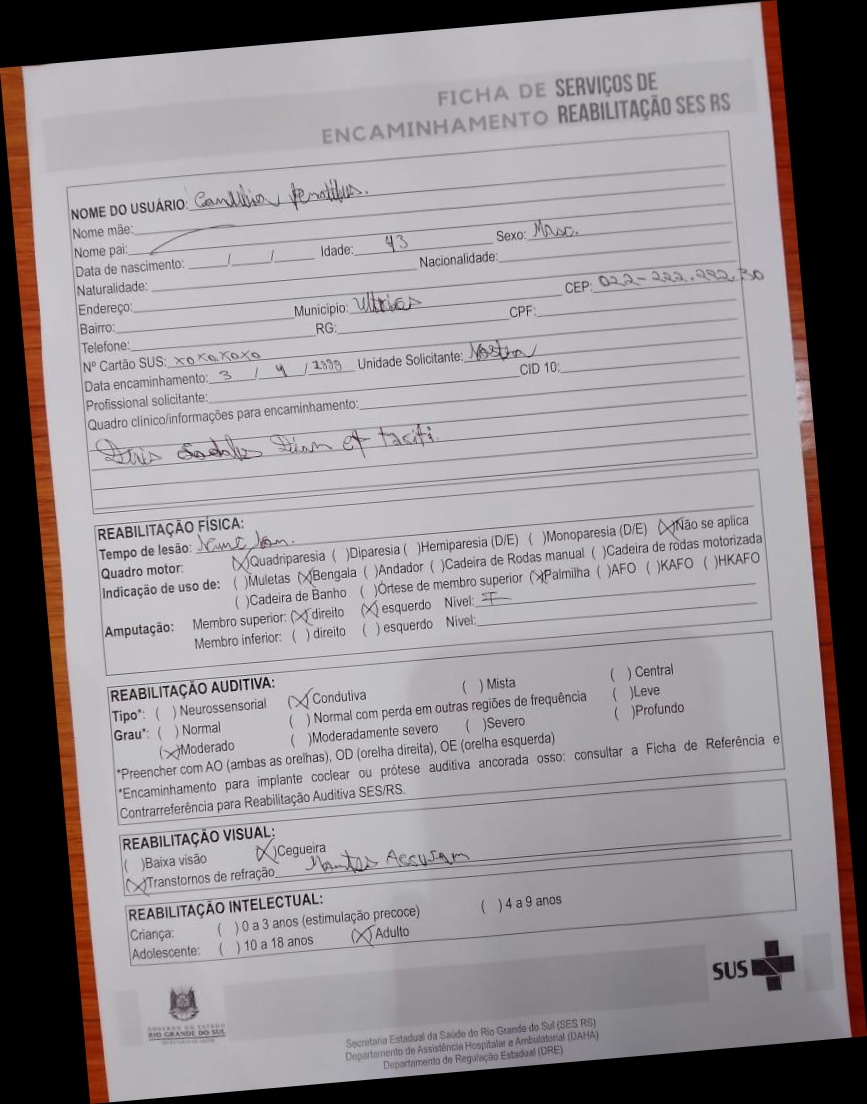 FICHA DE SERVIÇOS DE
ENCAMINHAMENTO REABILITAÇÃO SES RS
NOME DO USUÁRIO:
Nome mãe:
Nome pai:
Data de nascimento: / / Idade: 43 Sexo: Masc.
Naturalidade: Nacionalidade:
Endereço:
Bairro: Município: CEP: 022-222.292.30
Telefone: RG: CPF:
Nº Cartão SUS: xoxo.xoxo
Data encaminhamento: 3 / 4 / Unidade Solicitante:
Profissional solicitante: CID 10:
Quadro clínico/informações para encaminhamento:
Duis Sodales Diam et taciti
REABILITAÇÃO FÍSICA:
Tempo de lesão: Nunc
Quadro motor: (X)Quadriparesia ( )Diparesia ( )Hemiparesia (D/E) ( )Monoparesia (D/E) (X)Não se aplica
Indicação de uso de: ( )Muletas (X)Bengala ( )Andador ( )Cadeira de Rodas manual ( )Cadeira de rodas motorizada
( )Cadeira de Banho ( )Órtese de membro superior (X)Palmilha ( )AFO ( )KAFO ( )HKAFO
Amputação: Membro superior: (X) direito (X) esquerdo Nível: I
Membro inferior: ( ) direito ( ) esquerdo Nível:
REABILITAÇÃO AUDITIVA:
Tipo*: ( ) Neurossensorial (X)Condutiva ( ) Mista ( ) Central
Grau*: ( ) Normal ( ) Normal com perda em outras regiões de frequência ( )Leve
(X)Moderado ( )Moderadamente severo ( )Severo ( )Profundo
*Preencher com AO (ambas as orelhas), OD (orelha direita), OE (orelha esquerda)
*Encaminhamento para implante coclear ou prótese auditiva ancorada osso: consultar a Ficha de Referência e
Contrarreferência para Reabilitação Auditiva SES/RS.
REABILITAÇÃO VISUAL:
( )Baixa visão (X)Cegueira
(X)Transtornos de refração Montes Accusam
REABILITAÇÃO INTELECTUAL:
Criança: ( ) 0 a 3 anos (estimulação precoce) ( ) 4 a 9 anos
Adolescente: ( ) 10 a 18 anos (X) Adulto
SUS
GOVERNO DO ESTADO
RIO GRANDE DO SUL
Secretaria Estadual da Saúde do Rio Grande do Sul (SES RS)
Departamento de Assistência Hospitalar e Ambulatorial (DAHA)
Departamento de Regulação Estadual (DRE)